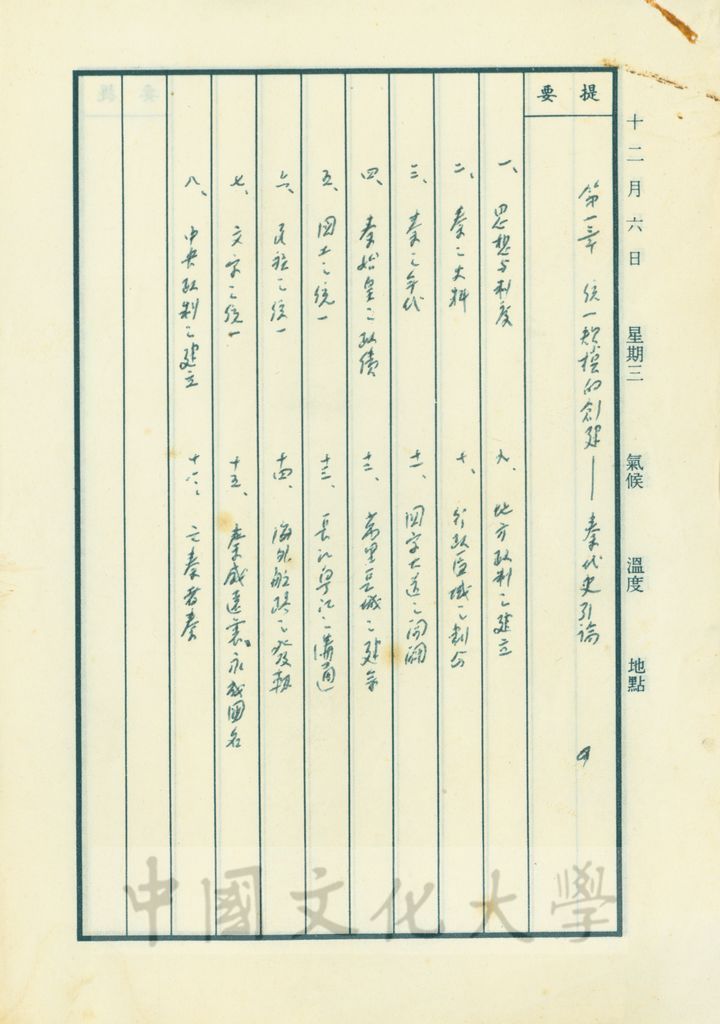 十二月六日 星期三 氣候 溫度 地點
提要
第一章 統一規模的創建——秦代史引論
一、思想与制度
九、地方政制之建立
二、秦之史料
十、行政區域之劃分
三、秦之年代
十一、國字大道之開闢
四、秦始皇之政績
十二、萬里長城之建築
五、國土之統一
十三、長江粤江之溝通
六、民族之統一
十四、海外航路之發軔
七、文字之統一
十五、秦威遠震、永我國名
八、中央政制之建立
十六、亡秦者秦
中國文化大學